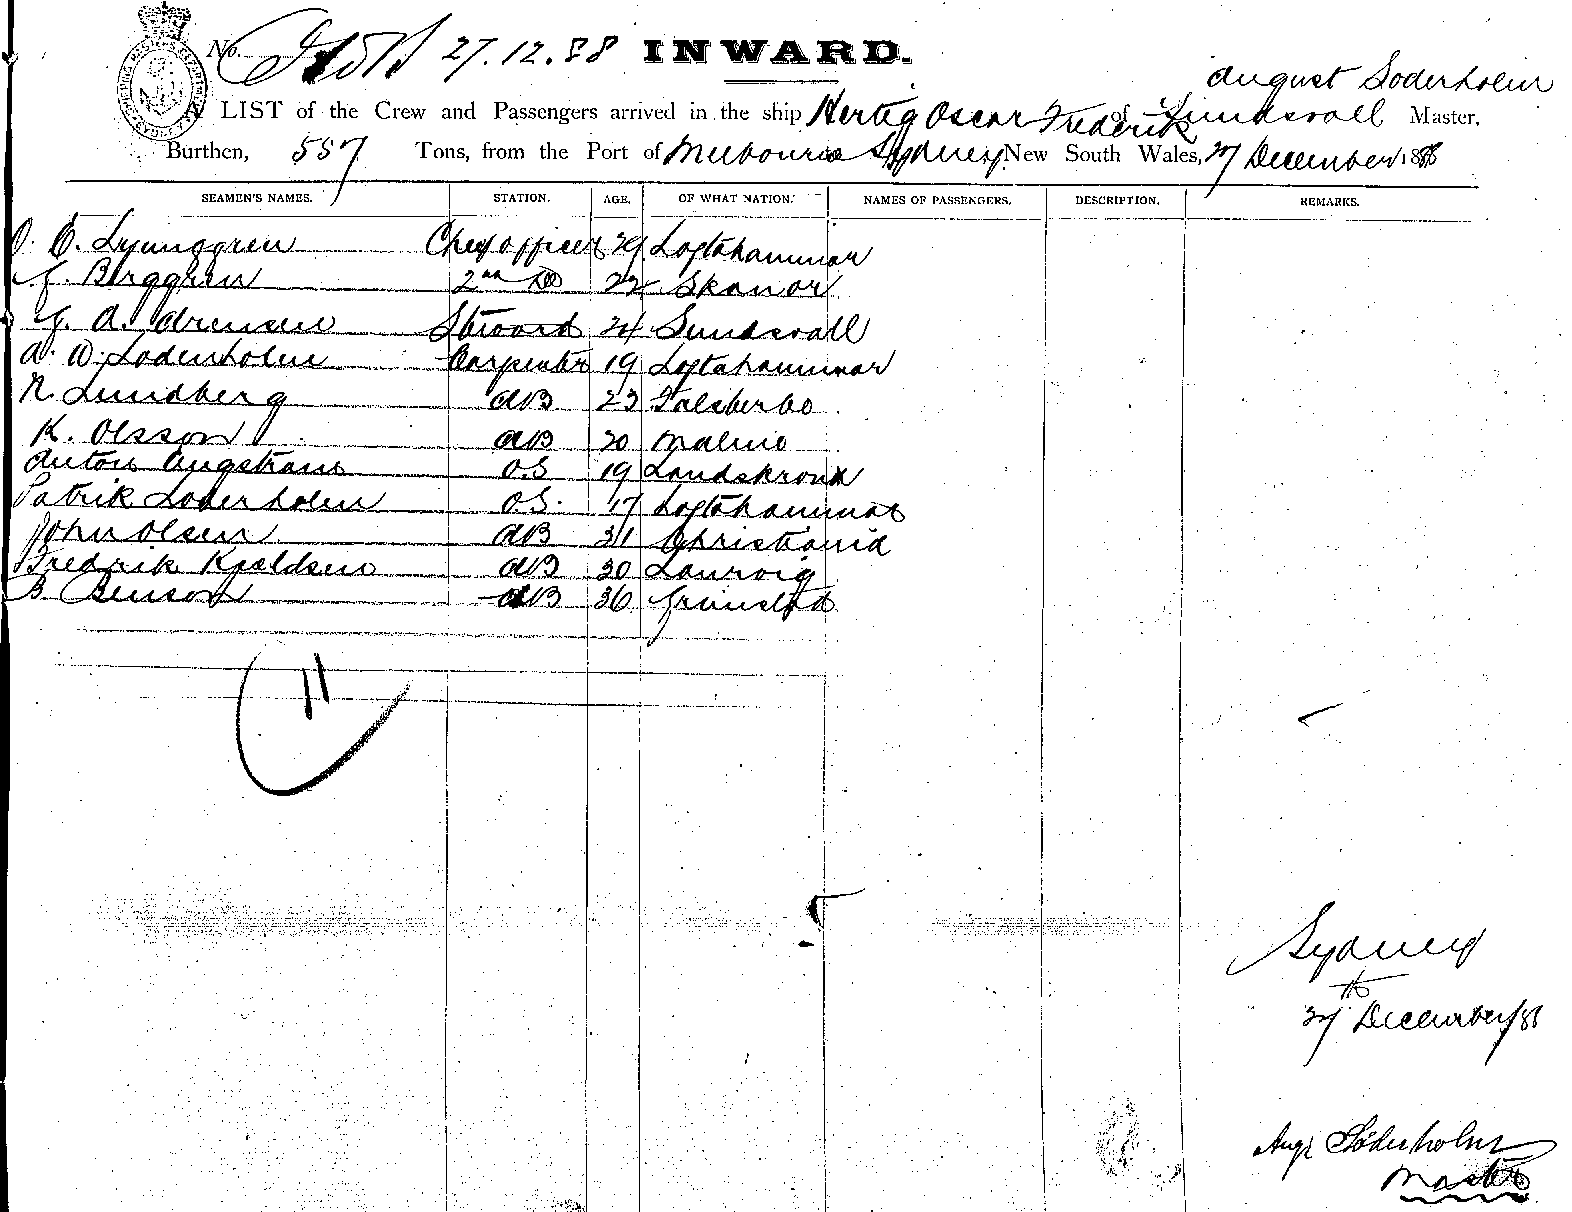 No. 27.12.88 INWARD.
August Soderholm
A LIST of the Crew and Passengers arrived in the ship Hertig Oscar Frederik of Sundsvall Master,
Burthen, 557 Tons, from the Port of Melbourne Sydney, New South Wales, 27 December 1888
SEAMEN'S NAMES. STATION. AGE. OF WHAT NATION. NAMES OF PASSENGERS. DESCRIPTION. REMARKS.
O. Lyunggren Chef officer 29 Loftahammar
Berggren 2nd Do 22 Skanor
A. Steward 24 Sundsvall
A. W. Soderholm Carpenter 19 Loftahammar
N. Lundberg AB 23 Falsterbo
K. Olsson AB 20 Malmo
Anton Angstrom O.S 19 Landskrona
Patrik Soderholm O.S. 17 Loftahammar
John Olsen AB 31 Christiania
Fredrik Kjeldsen AB 30 Laurvig
B. Benson AB 36 Grimstad
11
Sydney
27th December/88
Aug. Söderholm
Master